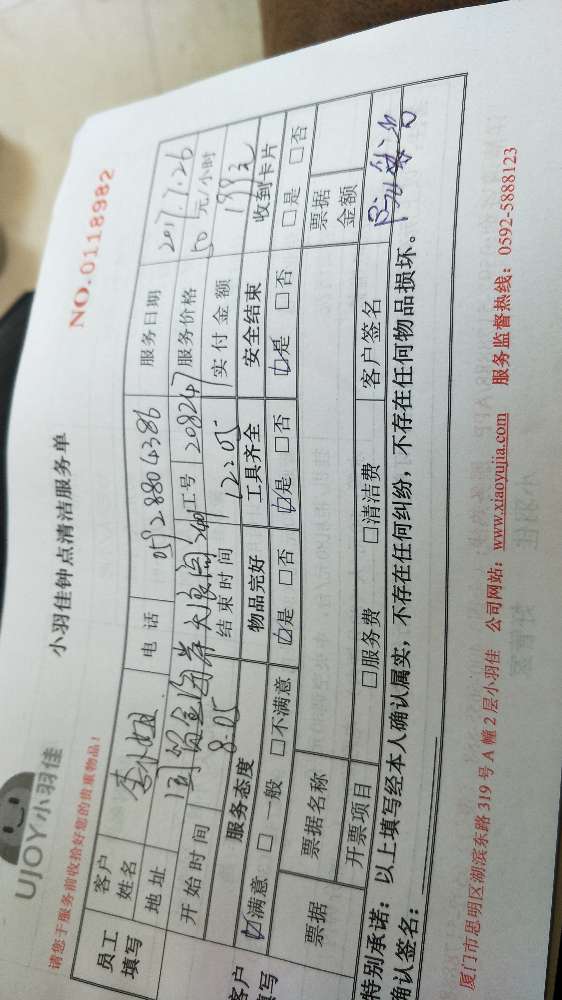 UJOY小羽佳
小羽佳钟点清洁服务单
NO.0118982
请您于服务前收拾好您的贵重物品!
员工填写
客户姓名 李小姐 电话 0592 8804386 服务日期 2017.7.26
地址 工号 208247 服务价格 50 元/小时
开始时间 8:05 结束时间 12:05 实付金额 199元
服务态度 物品完好 工具齐全 安全结束 收到卡片
客户填写
满意 □一般 □不满意 是 □否 是 □否 是 □否 □是 □否
票据 票据名称 票据金额
开票项目 □服务费 □清洁费 客户签名
特别承诺:以上填写经本人确认属实,不存在任何纠纷,不存在任何物品损坏。
确认签名:
厦门市思明区湖滨东路 319 号 A 幢 2 层小羽佳 公司网站:www.xiaoyujia.com 服务监督热线:0592-5888123